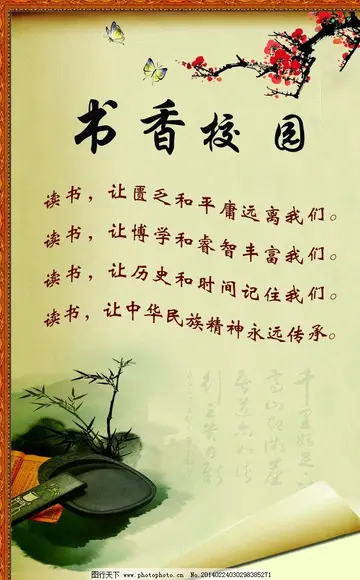 书香校园
读书，让匮乏和平庸远离我们。
读书，让博学和睿智丰富我们。
读书，让历史和时间记住我们。
读书，让中华民族精神永远传承。
图片网 www.photophoto.cn No.20140224030298385271